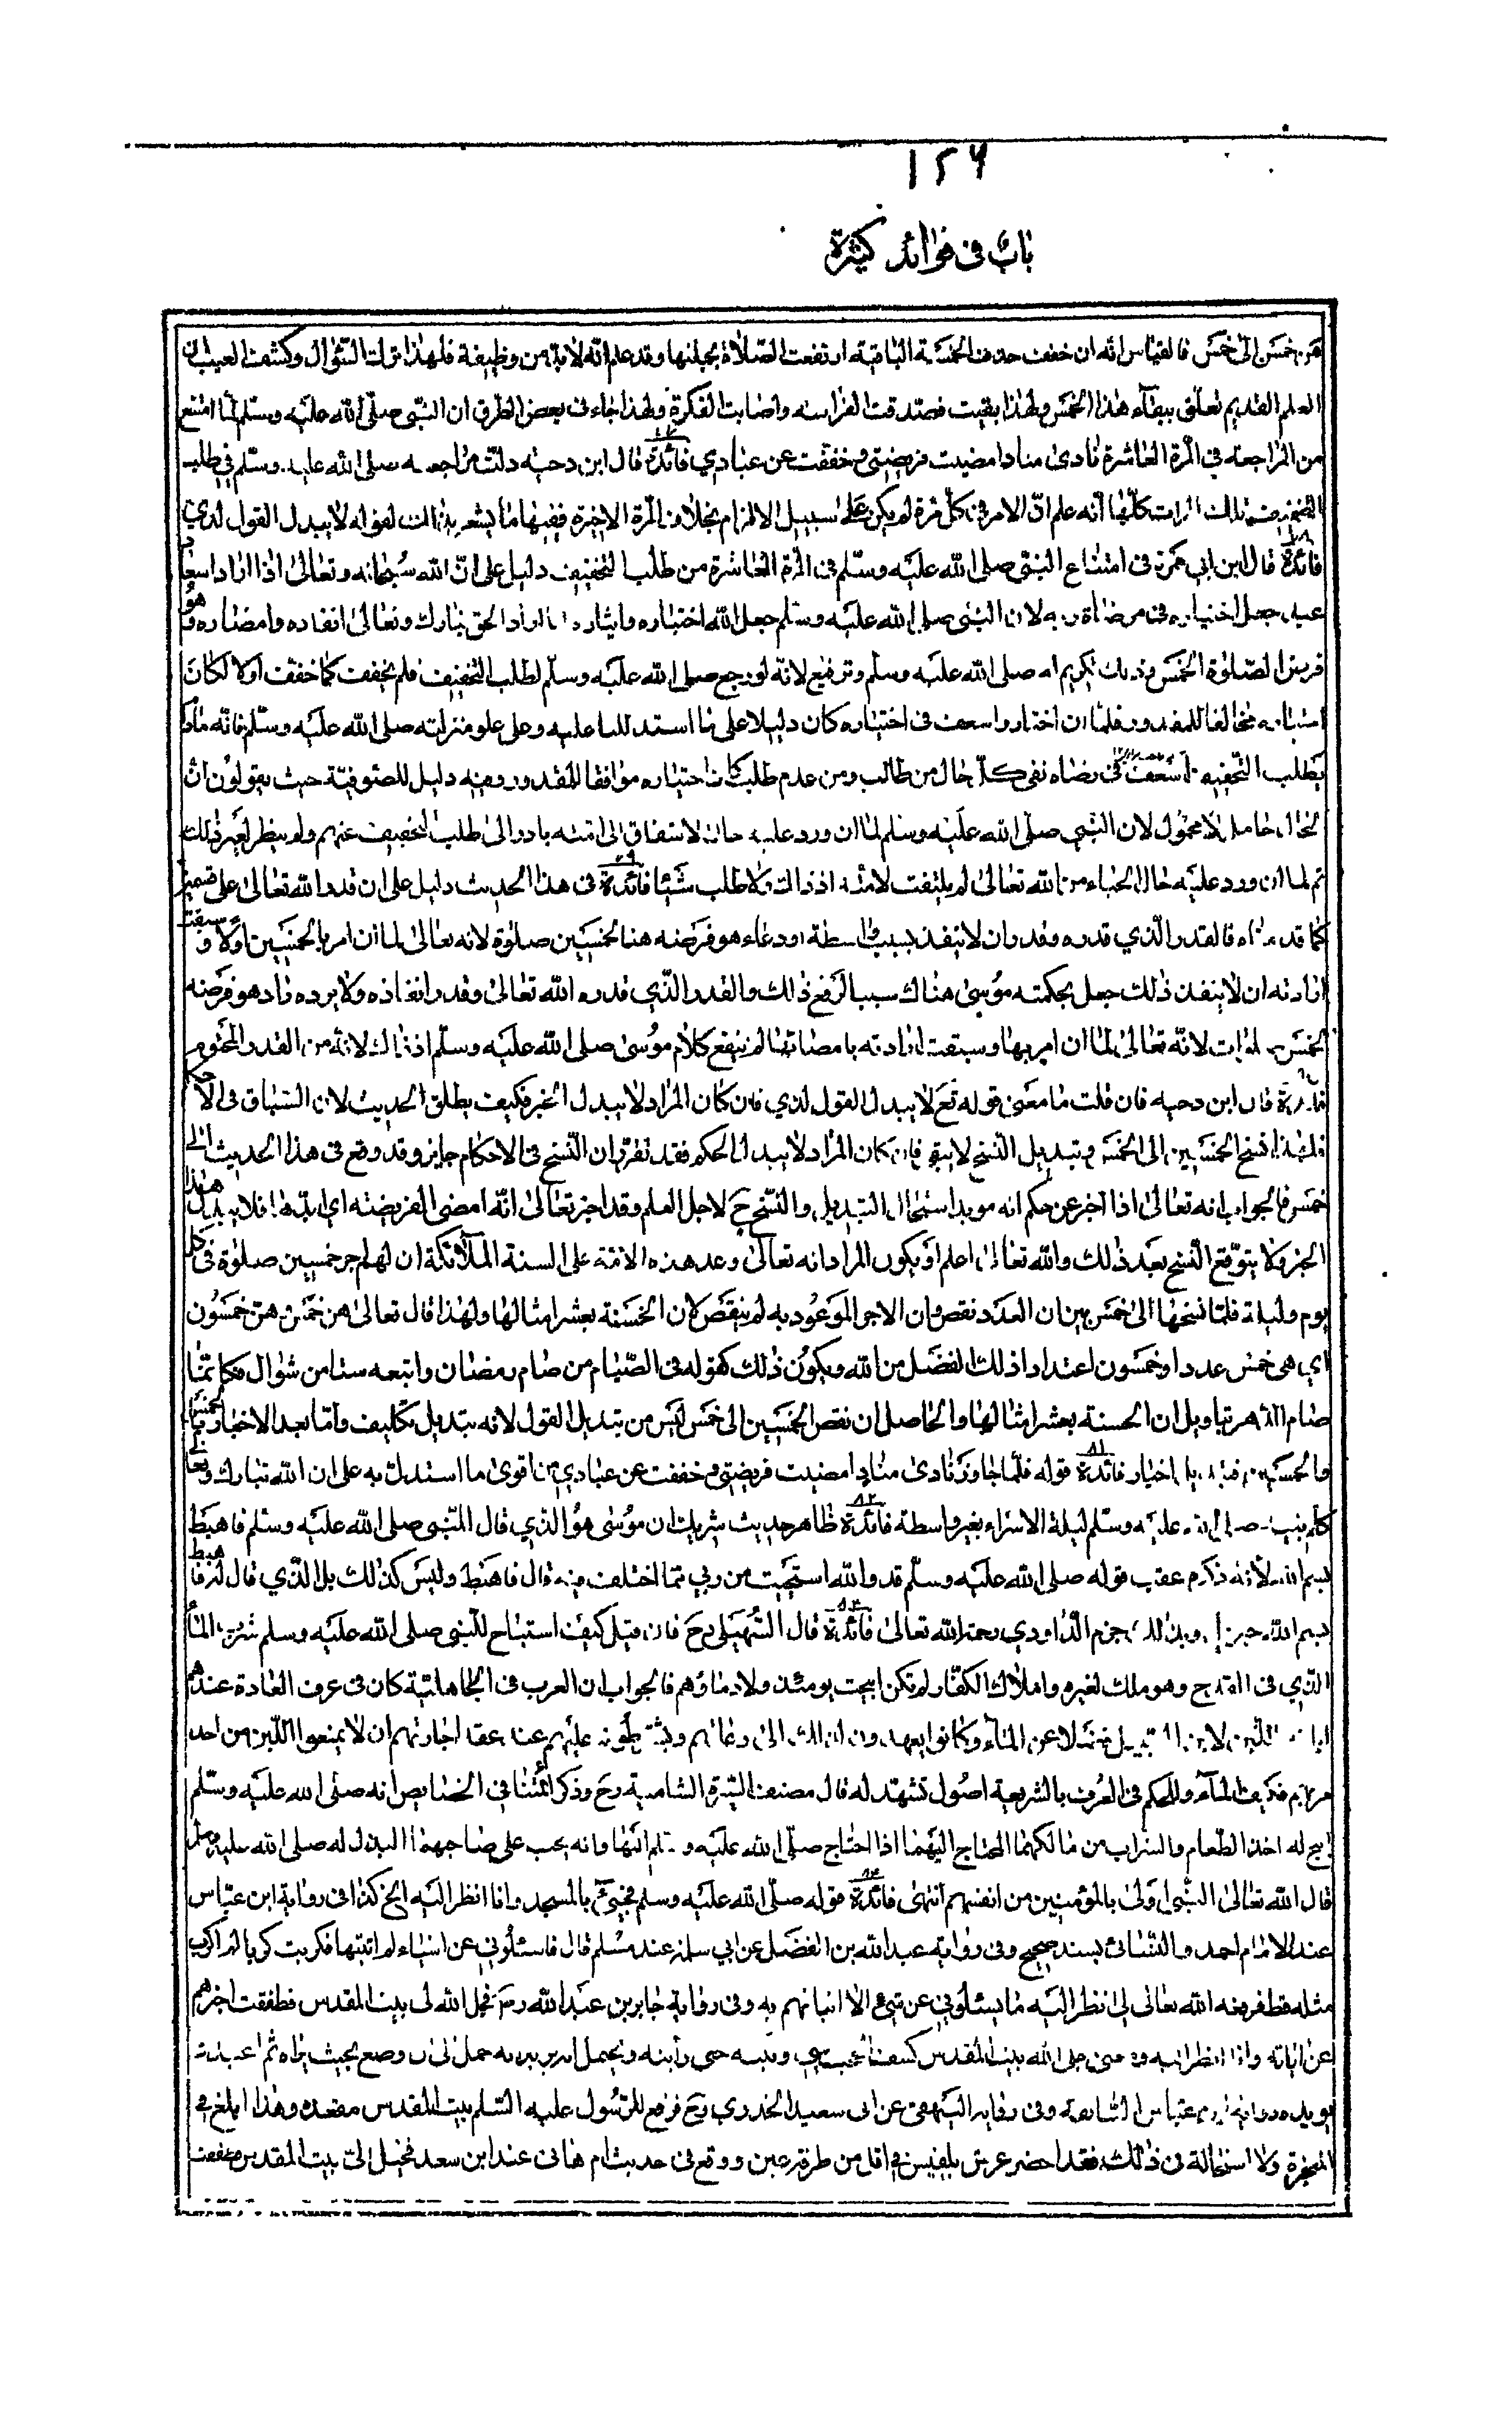 ١٢٦
باب في فوائد كثيرة
من خمس الى خمس فالقياس انه ان خففت حذف الخمسة الباقية ارتفعت الصلاة بجملتها وقد علم انه لابد من وظيفة فلهذا ترك السؤال وكشف العيب ان
العلم القديم تعلق ببقاء هذا الخمس ولهذا بقيت فصدقت الفراسة واصابت الفكرة ولهذا جاء في بعض الطرق ان النبي صلى الله عليه وسلم لما امتنع
من المراجعة في المرة العاشرة نادى مناد امضيت فريضتي وخففت عن عبادي فائدة قال ابن دحية دلت مراجعته صلى الله عليه وسلم في طلب
التخفيف تلك المرات كلها انه علم ان الامر في كل مرة لم يكن على سبيل الالزام بخلاف المرة الاخيرة ففيها ما يشعر بذلك لقوله لا يبدل القول لدي
فائدة قال ابن ابي جمرة في امتناع النبي صلى الله عليه وسلم في المرة العاشرة من طلب التخفيف دليل على ان الله سبحانه وتعالى اذا اراد اسعاد
عبد جعل اختياره في مرضاة ربه لان النبي صلى الله عليه وسلم جعل الله اختياره وايثاره لما اراد الحق تبارك وتعالى انفاذه وامضاره وهو
فرض الصلوة الخمس وذلك تكريم له صلى الله عليه وسلم وترفيع لانه لو رجع صلى الله عليه وسلم لطلب التخفيف فلم يخفف كما خفف اولا لكان
اختياره مخالفا للمقدور فلما ان اختار واسعف في اختياره كان دليلا على ما استدللنا عليه وعلى علو منزلته صلى الله عليه وسلم فانه مادام
يطلب التخفيف اسعف في رضاه ففي كل حال من طالب ومن عدم طلب كان اختياره موافقا للمقدور وفيه دليل للصوفية حيث يقولون ان
الحال حامل لا محمول لان النبي صلى الله عليه وسلم لما ان ورد عليه حال الاشفاق الى امته بادر الى طلب التخفيف عنهم ولم ينظر لغير ذلك
ثم لما ان ورد عليه حال الحياء من الله تعالى لم يلتفت لامته اذ ذاك ولا طلب شيئا فائدة في هذا الحديث دليل على ان قدر الله تعالى على قسمين
كما قدمناه فالقدر الذي قدره وقدر ان لا ينفذ بسبب واسطة او دعاء هو فرضه هنا الخمسين صلوة لانه تعالى لما ان امر بالخمسين اولا وسبقت
ارادته ان لا ينفذ ذلك جعل بحكمته موسى هناك سببا لرفع ذلك والقدر الذي قدره الله تعالى وقدر انفاذه ولا يرده راد هو فرضه
الخمس صلوات لانه تعالى لما ان امر بها وسبقت ارادته بامضائها لم ينفع كلام موسى صلى الله عليه وسلم اذ ذاك لانه من القدر المحتوم
فائدة قال ابن دحية فان قلت ما معنى قوله تع لا يبدل القول لدي فان كان المراد لا يبدل الخبر فكيف يطلق الحديث لان السياق في الاحكام
ولهذا نسخ الخمسين الى الخمسة وتبديل النسخ لا يبقى فان كان المراد لا يبدل الحكم فقد تقرر ان النسخ في الاحكام جايز وقد وقع في هذا الحديث الى
خمس فالجواب انه تعالى اذا اخبر عن حكم انه مؤبد استحال التبديل والنسخ ح لاجل العلم وقد اخبر تعالى انه امضى الفريضة اي ابدها فلا يبدل هذا
الخبر ولا يتوقع النسخ بعد ذلك والله تعالى اعلم او يكون المراد انه تعالى وعد هذه الامة على السنة الملائكة ان لهم اجر خمسين صلوة في كل
يوم وليلة فلما نسخها الى خمس بين ان العدد نقص وان الاجر الموعود به لم ينقص لان الحسنة بعشر امثالها ولهذا قال تعالى هن خمس وهن خمسون
اي هي خمس عددا وخمسون اعتدادا ذلك الفضل من الله ويكون ذلك كقوله في الصيام من صام رمضان واتبعه ستا من شوال فكانما
صام الدهر بتاويل ان الحسنة بعشر امثالها والحاصل ان نقص الخمسين الى خمس ليس من تبديل القول لانه تبديل تكليف واما بعد الاخبار بالخمس
والخمسين اخبار فائدة قوله فلما جاوز نادى مناد امضيت فريضتي وخففت عن عبادي من اقوى ما استدل به على ان الله تبارك وتعالى
كلم نبيه صلى الله عليه وسلم ليلة الاسراء بغير واسطة فائدة ظاهر حديث شريك ان موسى هو الذي قال للنبي صلى الله عليه وسلم فاهبط
بسم الله لانه ذكره عقب قوله صلى الله عليه وسلم قد والله استحييت من ربي مما اختلفت اليه قال فاهبط وليس كذلك بل الذي قال له فاهبط
بسم الله جبريل وبذلك جزم الداودي رحمه الله تعالى فائدة قال السهيلي رح فان قيل كيف استباح للنبي صلى الله عليه وسلم شرب الماء
الذي في القدح وهو ملك لغيره واملاك الكفار لم تكن ابيحت يومئذ ولا دماؤهم فالجواب ان العرب في الجاهلية كان في عرف العادة عندهم
اباحة اللبن لابن السبيل فضلا عن الماء وكانوا يعهدون بذلك الى رعائهم ويشترطونه عليهم عند عقد اجارتهم ان لا يمنعوا اللبن من احد
مر بهم فكيف الماء وللحكم في العرف بالشريعة اصول تشهد له قال مصنف السيرة الشامية رح وذكر ائمتنا في الخصايص انه صلى الله عليه وسلم
ابيح له اخذ الطعام والشراب من مالكهما المحتاج اليهما اذا احتاج صلى الله عليه وسلم اليهما وانه يجب على صاحبهما البذل له صلى الله عليه وسلم
قال الله تعالى النبي اولى بالمؤمنين من انفسهم انتهى فائدة قوله صلى الله عليه وسلم فجيئ بالمسجد وانا انظر اليه الخ كذا في رواية ابن عباس
عند الامام احمد والنسائي بسند صحيح وفي رواية عبد الله بن الفضل عن ابي سلمة عند مسلم قال فاسئلوني عن اشياء لم اثبتها فكربت كربا لم اكرب
مثله قط فرفعه الله تعالى لي انظر اليه ما يسئلوني عن شيء الا انباتهم به وفي رواية جابر بن عبد الله رض فجلى الله لي بيت المقدس فطفقت اخبرهم
عن اياته وانا انظر اليه ومعنى جلى الله بيت المقدس كشف الحجب بيني وبينه حتى رأيته ويحتمل ان يريد به حمل الى ان وضع بحيث يراه ثم اعيد
يؤيده رواية ابن عباس السابقة وفي رواية البيهقي عن ابي سعيد الخدري رض فرفع للرسول عليه السلم بيت المقدس مقعده وهذا ابلغ في
المعجزة ولا استحالة في ذلك فقد احضر عرش بلقيس في اقل من طرفة عين ووقع في حديث ام هاني عند ابن سعد فخيل الي بيت المقدس فطفقت